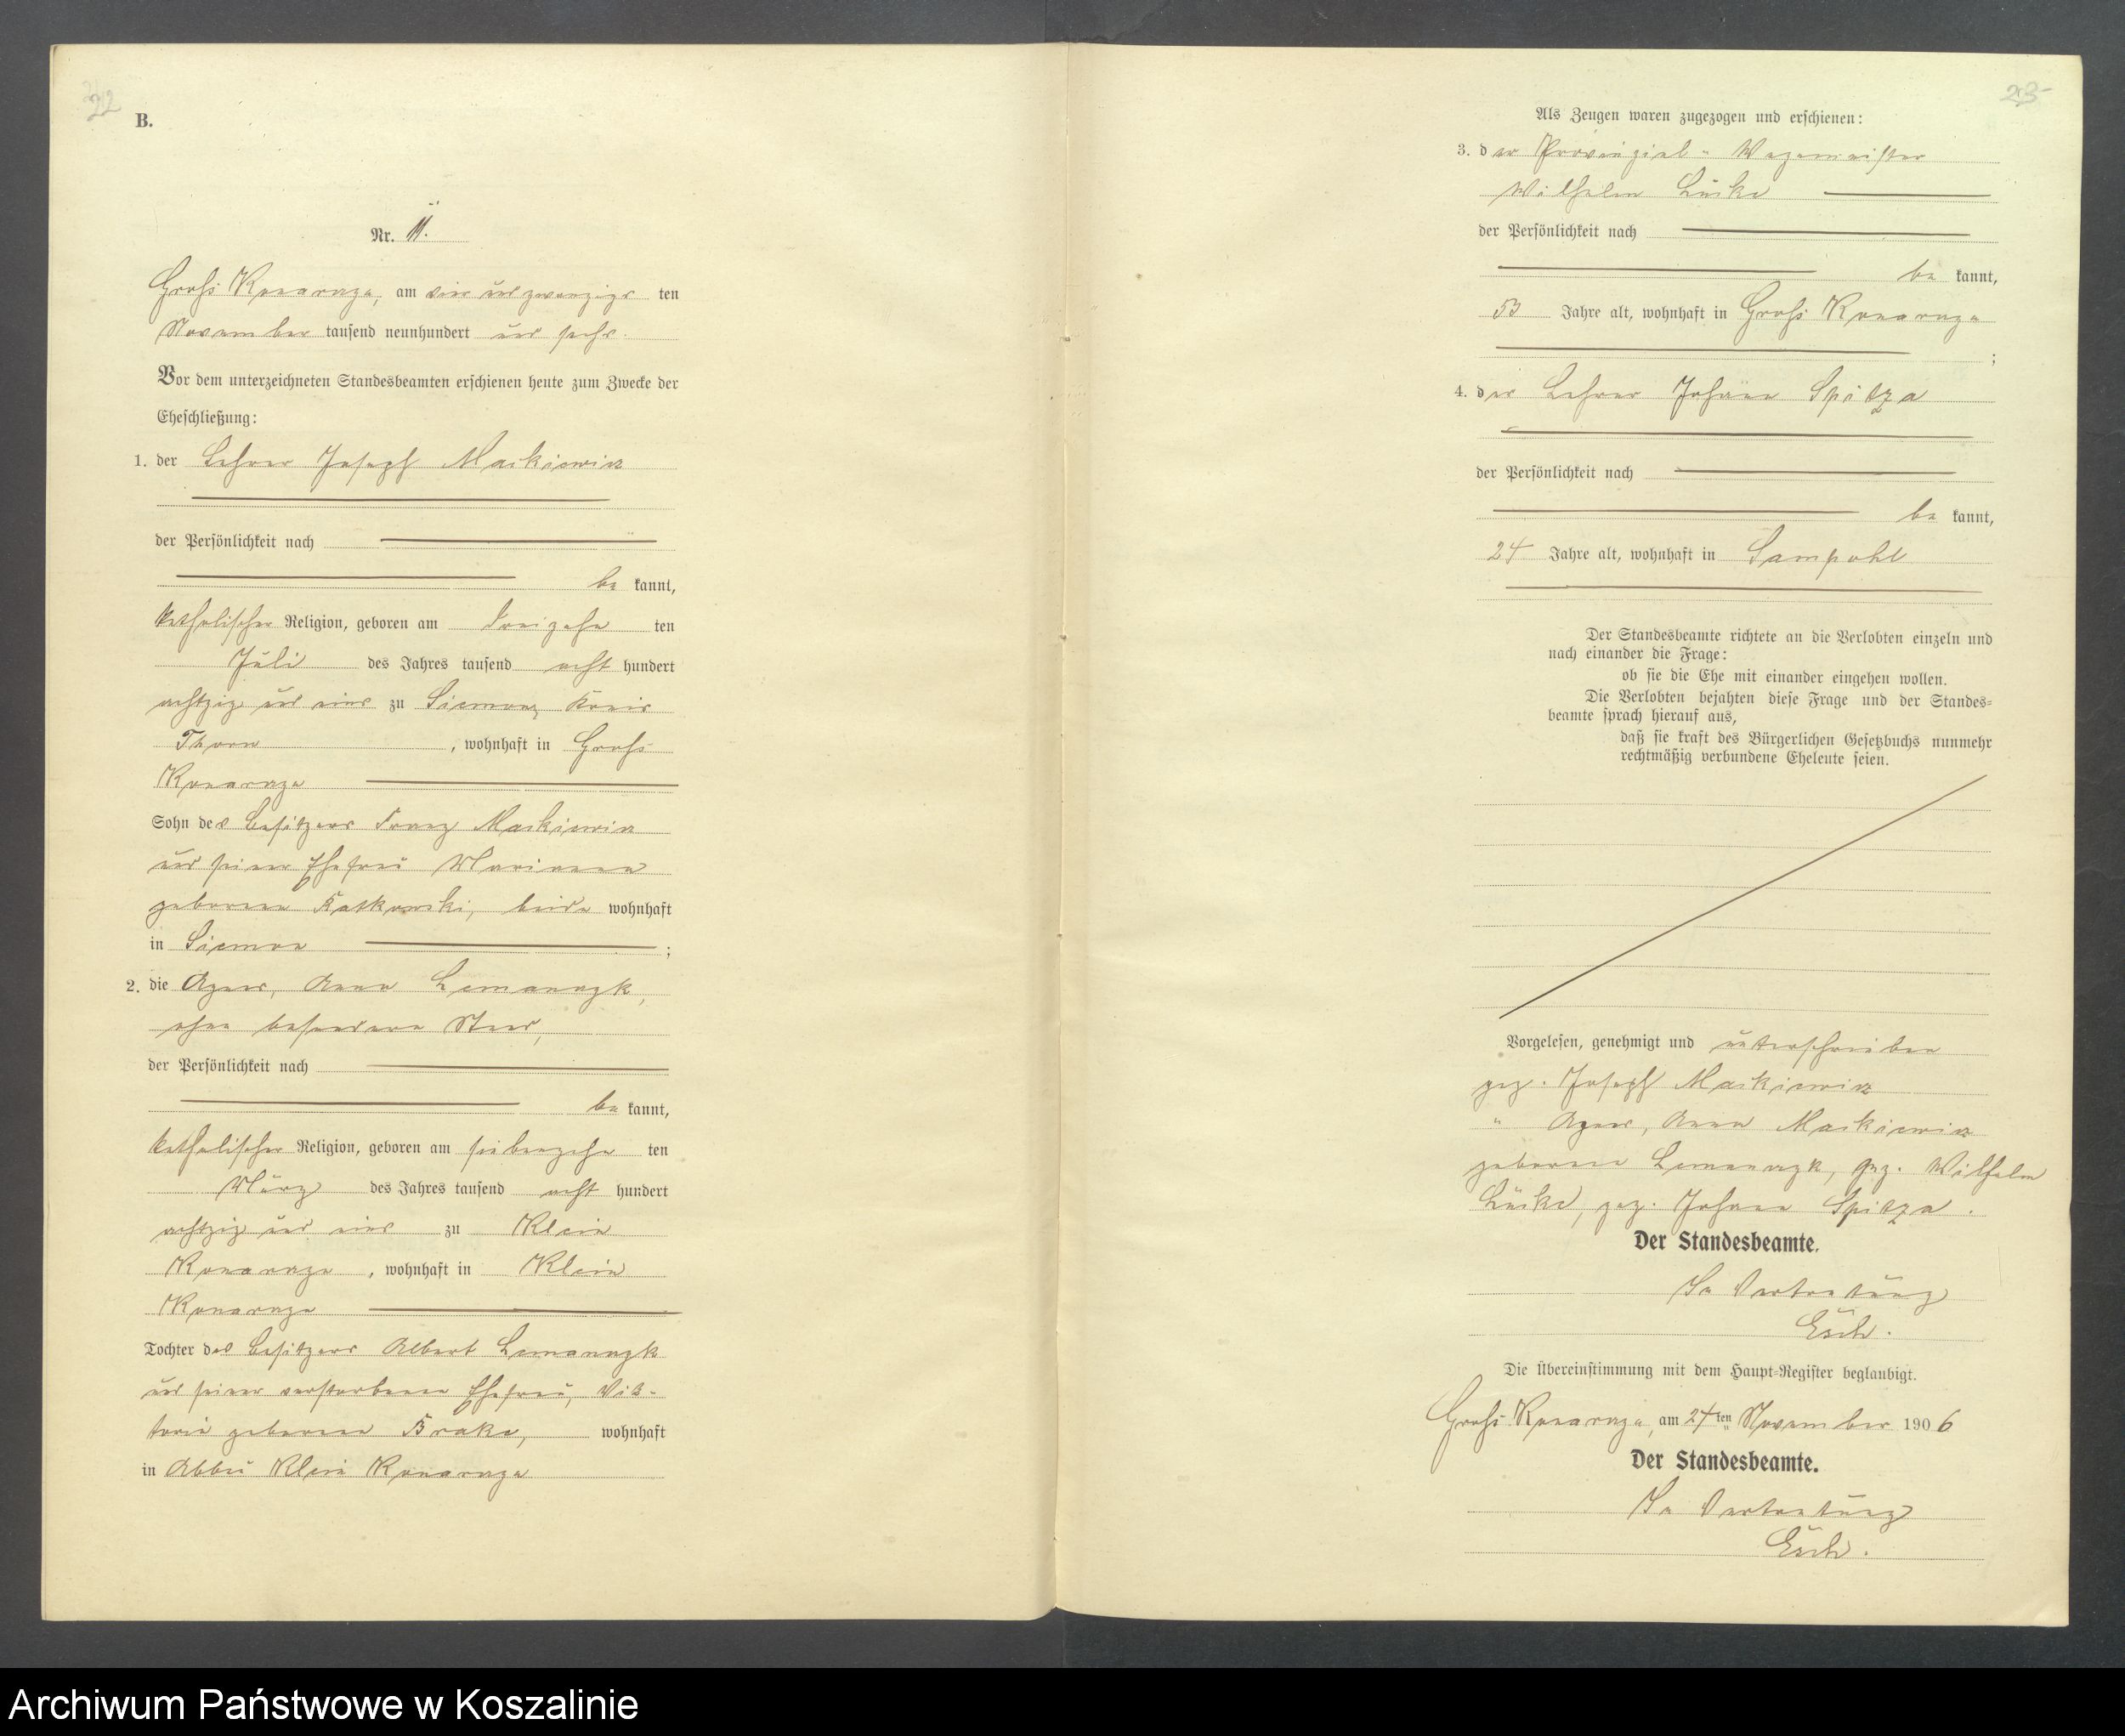 22
B.
Nr. 11.
Groß Konarczyn, am vier und zwanzigs ten
November tausend neunhundert und sechs.
Vor dem unterzeichneten Standesbeamten erschienen heute zum Zwecke der
Eheschließung:
1. der Lehrer Joseph Mackiewicz
der Persönlichkeit nach
be kannt,
katholischer Religion, geboren am dreizehn ten
Juli des Jahres tausend acht hundert
achtzig und eins zu Siemon, Kreis
Thorn, wohnhaft in Groß
Sohn des Besitzers Franz Mackiewicz
und seiner Ehefrau Marianna
geborenen beide wohnhaft
in Siemon ;
2. die Agnes, Anna Lemanczyk,
ohne besonderen Stand,
der Persönlichkeit nach
be kannt,
katholischer Religion, geboren am siebenzehn ten
März des Jahres tausend acht hundert
achtzig und eins zu Klein
, wohnhaft in Klein
Tochter des Besitzers Albert Lemanczyk
und seiner verstorbenen Ehefrau, Vik-
toria geborenen wohnhaft
in Abbau Klein
23
Als Zeugen waren zugezogen und erschienen:
3. der Provinzial-Wegemeister
Wilhelm Lücke
der Persönlichkeit nach
be kannt,
53 Jahre alt, wohnhaft in Groß
;
4. der Lehrer Johann Spitza
der Persönlichkeit nach
be kannt,
24 Jahre alt, wohnhaft in Sampohl
Der Standesbeamte richtete an die Verlobten einzeln und
nach einander die Frage:
ob sie die Ehe mit einander eingehen wollen.
Die Verlobten bejahten diese Frage und der Standes-
beamte sprach hierauf aus,
daß sie kraft des Bürgerlichen Gesetzbuchs nunmehr
rechtmäßig verbundene Eheleute seien.
Vorgelesen, genehmigt und unterschrieben
gez. Joseph Mackiewicz
" Agnes, Anna Mackiewicz
geborene Lemanczyk, gez. Wilhelm
Lücke, gez. Johann Spitza.
Der Standesbeamte.
In Vertretung
Die Übereinstimmung mit dem Haupt-Register beglaubigt.
Groß am 24ten November 1906
Der Standesbeamte.
In Vertretung
Archiwum Państwowe w Koszalinie